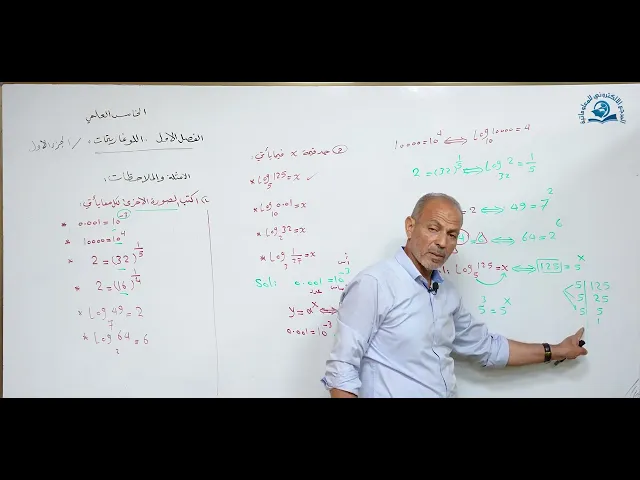 الخامس العلمي
الفصل الأول . اللوغاريتمات . / الجزء الأول
الأمثلة والملاحظات:
اكتب الصورة الأخرى لكل مما يأتي:
* 0.001 = 10⁻³
* 10000 = 10⁴
* 2 = (32)^{1/5}
* 2 = (16)^{1/4}
* Log₇ 49 = 2
* Log₂ 64 = 6
جد قيمة x فيما يأتي:
* Log₅ 125 = x ✓
* Log₁₀ 0.01 = x
* Log₂ 32 = x
Sol: 0.001 = 10⁻³
أس
أساس
عدد
y = a^x ⟺
0.001 = 10⁻³
10000 = 10⁴ ⟺ Log₁₀ 10000 = 4
2 = (32)^{1/5} ⟺ Log₃₂ 2 = 1/5
= 2 ⟺ 49 = 7²
⟺ 64 = 2⁶
Log₅ 125 = x ⟺ 125 = 5^x
5³ = 5^x
5 | 125
5 | 25
5 | 5
1
المعجم الالكتروني للمعلوماتية